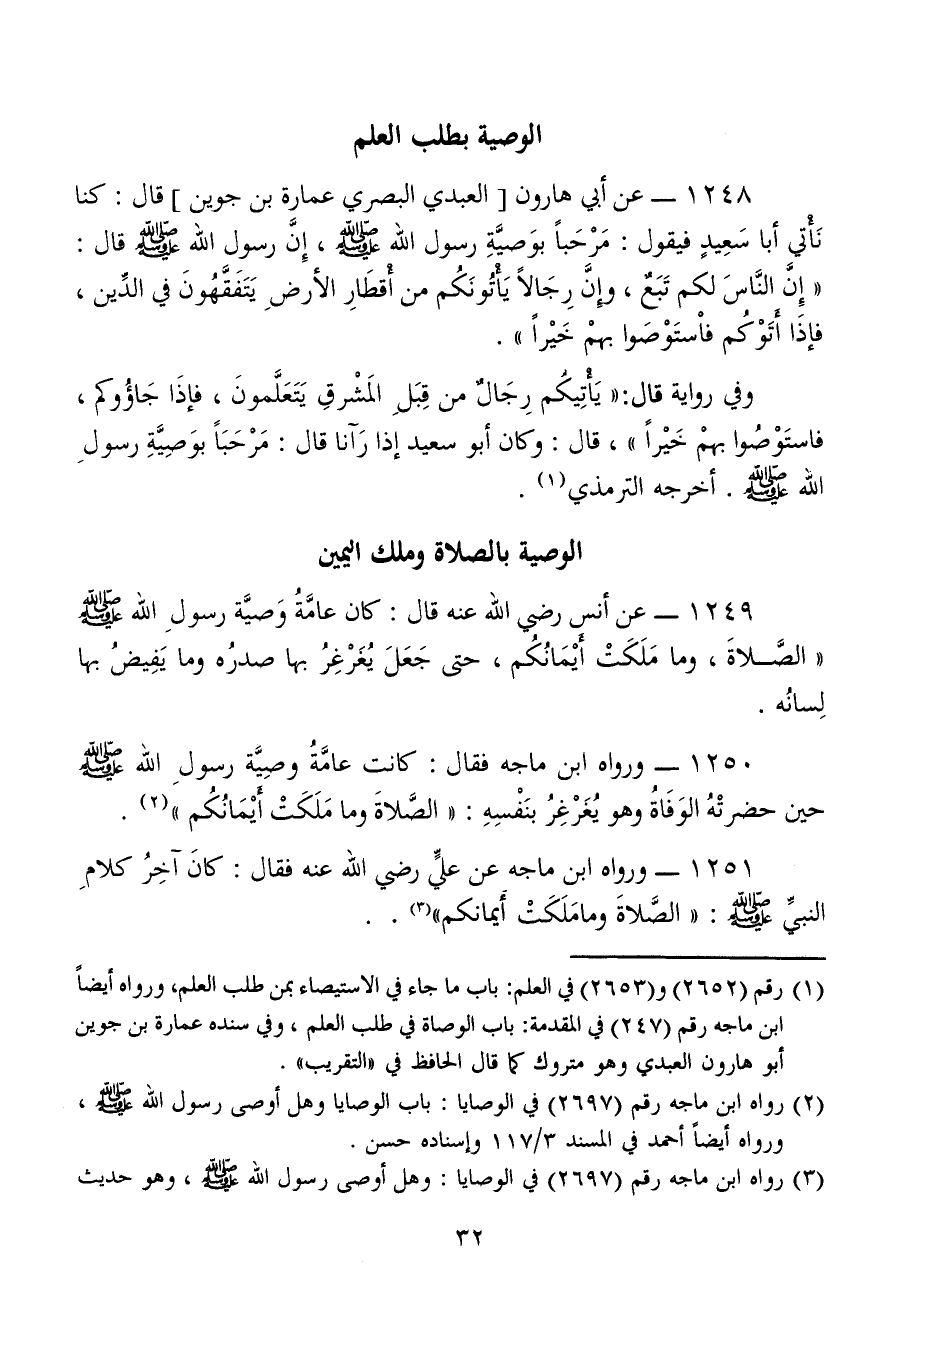 الوصية بطلب العلم
١٢٤٨ — عن أبي هارون [ العبدي البصري عمارة بن جوين ] قال : كنا
نَأْتي أبا سَعِيدٍ فيقول : مَرْحَباً بوَصيَّةِ رسول الله ﷺ ، إنَّ رسول الله ﷺ قال :
« إنَّ النَّاسَ لكم تَبَعٌ ، وإنَّ رِجالاً يَأْتُونَكُم من أَقْطَارِ الأرضِ يَتَفَقَّهُونَ في الدِّين ،
فإذَا أَتَوْكُم فاسْتَوْصَوا بهمْ خَيْراً » .
وفي رواية قال:« يَأْتِيكُم رِجَالٌ من قِبَلِ المَشْرقِ يَتَعَلَّمونَ ، فإذَا جَاؤُوكم ،
فاستَوْصُوا بهمْ خَيْراً » ، قال : وكان أبو سعيد إذا رَآنا قال : مَرْحَبَاً بوَصِيَّةِ رسولِ
الله ﷺ . أخرجه الترمذي(١) .
الوصية بالصلاة وملك اليمين
١٢٤٩ — عن أنس رضي الله عنه قال : كان عامَّةُ وَصيَّة رسولِ الله ﷺ
« الصَّلاةَ ، وما مَلَكَتْ أَيْمَانُكُم ، حتى جَعَلَ يُغَرْغِرُ بها صدرُه وما يَفِيضُ بها
لِسانُه .
١٢٥٠ — ورواه ابن ماجه فقال : كانت عامَّةُ وصيَّة رسولِ الله ﷺ
حين حضرتْهُ الوَفَاةُ وهو يُغَرْغِرُ بنَفْسِهِ : « الصَّلاةَ وما مَلَكَتْ أَيْمَانُكُم »(٢) .
١٢٥١ — ورواه ابن ماجه عن عليٍّ رضي الله عنه فقال : كانَ آخِرُ كلامِ
النبيِّ ﷺ : « الصَّلاةَ ومامَلَكَتْ أَيمانكم»(٣) . .
(١) رقم (٢٦٥٢) و(٢٦٥٣) في العلم: باب ما جاء في الاستيصاء بمن طلب العلم، ورواه أيضاً
ابن ماجه رقم (٢٤٧) في المقدمة: باب الوصاة في طلب العلم ، وفي سنده عمارة بن جوين
أبو هارون العبدي وهو متروك كما قال الحافظ في «التقريب» .
(٢) رواه ابن ماجه رقم (٢٦٩٧) في الوصايا : باب الوصايا وهل أوصى رسول الله ﷺ ،
ورواه أيضاً أحمد في المسند ١١٧/٣ وإسناده حسن .
(٣) رواه ابن ماجه رقم (٢٦٩٧) في الوصايا : وهل أوصى رسول الله ﷺ ، وهو حديث
٣٢